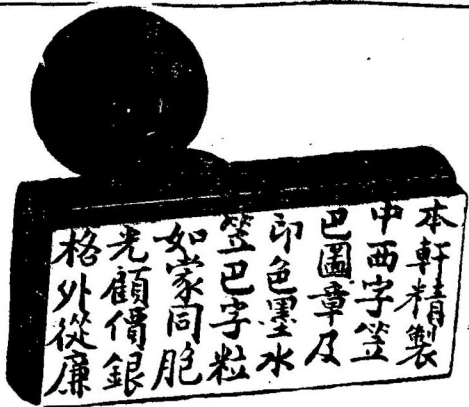 本軒精製
中西字笠
巴圖章及
印色墨水
笠巴字粒
如家同胞
光顧價銀
格外從廉